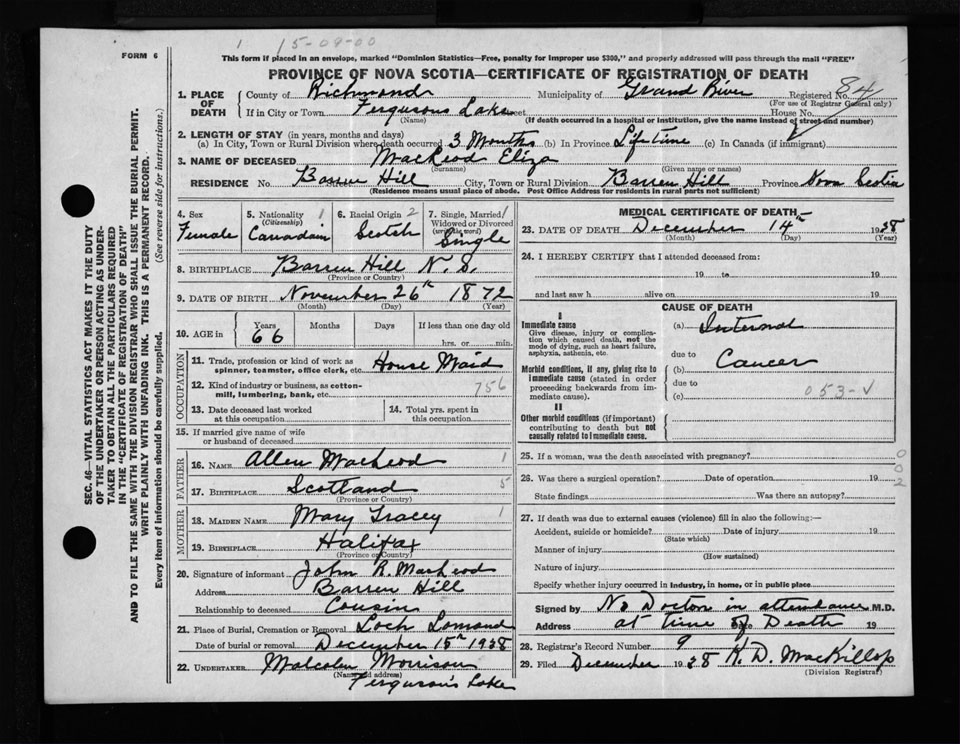 15-09-00
FORM 6
This form if placed in an envelope, marked "Dominion Statistics—Free, penalty for improper use $300," and properly addressed will pass through the mail "FREE"
PROVINCE OF NOVA SCOTIA—CERTIFICATE OF REGISTRATION OF DEATH
1. PLACE OF DEATH { County of Richmond Municipality of Grand River Registered No. 84
(For use of Registrar General only)
If in City or Town Fergusons Lake Street House No.
(Name) (If death occurred in a hospital or institution, give the name instead of street and number)
2. LENGTH OF STAY (in years, months and days)
(a) In City, Town or Rural Division where death occurred 3 Months (b) In Province Lifetime (c) In Canada (if immigrant)
3. NAME OF DECEASED MacLeod Eliza
(Surname) (Given name or names)
RESIDENCE No. Barren Hill City, Town or Rural Division Barren Hill Province Nova Scotia
(Residence means usual place of abode. Post Office Address for residents in rural parts not sufficient)
4. Sex Female
5. Nationality (Citizenship) 1 Canadain
6. Racial Origin 2 Scotch
7. Single, Married 1 Widowed or Divorced (write the word) Single
8. BIRTHPLACE Barren Hill N. S.
(Province or Country)
9. DATE OF BIRTH November 26th 1872
(Month) (Day) (Year)
10. AGE in Years 66 Months Days If less than one day old
hrs. or min.
OCCUPATION
11. Trade, profession or kind of work as spinner, teamster, office clerk, etc. House Maid
12. Kind of industry or business, as cotton-mill, lumbering, bank, etc. 756
13. Date deceased last worked at this occupation
14. Total yrs. spent in this occupation
15. If married give name of wife or husband of deceased
FATHER
16. NAME Allen MacLeod 1
17. BIRTHPLACE Scotland 5
(Province or Country)
MOTHER
18. MAIDEN NAME Mary Tracey 1
19. BIRTHPLACE Halifax
(Province or Country)
20. Signature of informant John R. MacLeod
Address Barren Hill
Relationship to deceased Cousin
21. Place of Burial, Cremation or Removal Loch Lomond
Date of burial or removal December 15th 1938
22. UNDERTAKER Malcolm Morrison
(Name and address)
Ferguson's Lake
MEDICAL CERTIFICATE OF DEATH
23. DATE OF DEATH December 14th 1938
(Month) (Day) (Year)
24. I HEREBY CERTIFY that I attended deceased from:
19 to 19
and last saw h alive on 19
CAUSE OF DEATH
I
Immediate cause
Give disease, injury or complication which caused death, not the mode of dying, such as heart failure, asphyxia, asthenia, etc.
(a) Internal
due to
Morbid conditions, if any, giving rise to immediate cause (stated in order proceeding backwards from immediate cause).
(b) Cancer
due to
(c) 053-✓
II
Other morbid conditions (if important) contributing to death but not causally related to immediate cause.
25. If a woman, was the death associated with pregnancy? 0
26. Was there a surgical operation? Date of operation 19 0
State findings Was there an autopsy? 2
27. If death was due to external causes (violence) fill in also the following:—
Accident, suicide or homicide? Date of injury 19
(State which)
Manner of injury
(How sustained)
Nature of injury
Specify whether injury occurred in industry, in home, or in public place
Signed by No Doctor in attendance M.D.
Address at time of Death Date 19
28. Registrar's Record Number 9
29. Filed December 1938 K. D. MacKillop
(Division Registrar)
SEC. 46—VITAL STATISTICS ACT MAKES IT THE DUTY
OF THE UNDERTAKER OR PERSON ACTING AS UNDER-
TAKER TO OBTAIN ALL THE PARTICULARS REQUIRED
IN THE "CERTIFICATE OF REGISTRATION OF DEATH"
AND TO FILE THE SAME WITH THE DIVISION REGISTRAR WHO SHALL ISSUE THE BURIAL PERMIT.
WRITE PLAINLY WITH UNFADING INK. THIS IS A PERMANENT RECORD.
Every item of information should be carefully supplied. (See reverse side for instructions.)